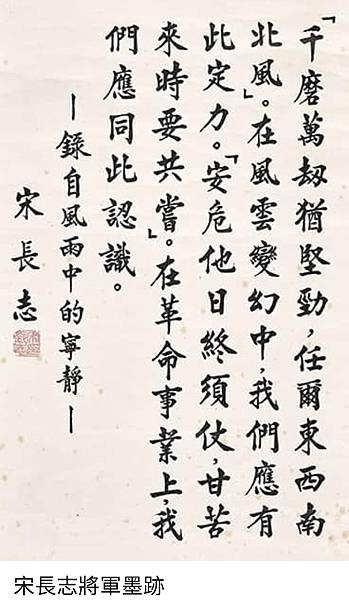 「千磨萬劫猶堅勁，任爾東西南
北風」。在風雲變幻中，我們應有
此定力。「安危他日終須仗，甘苦
來時要共嘗」。在革命事業上，我
們應同此認識。
－錄自風雨中的寧靜－
宋長志
宋長志將軍墨跡